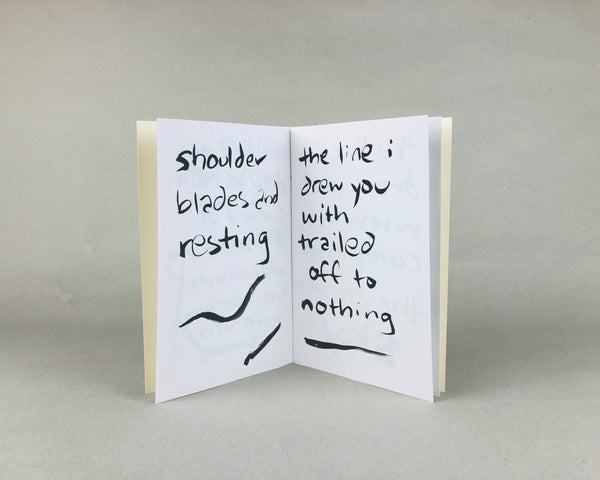 shoulder
blades and
resting
the line i
drew you
with
trailed
off to
nothing